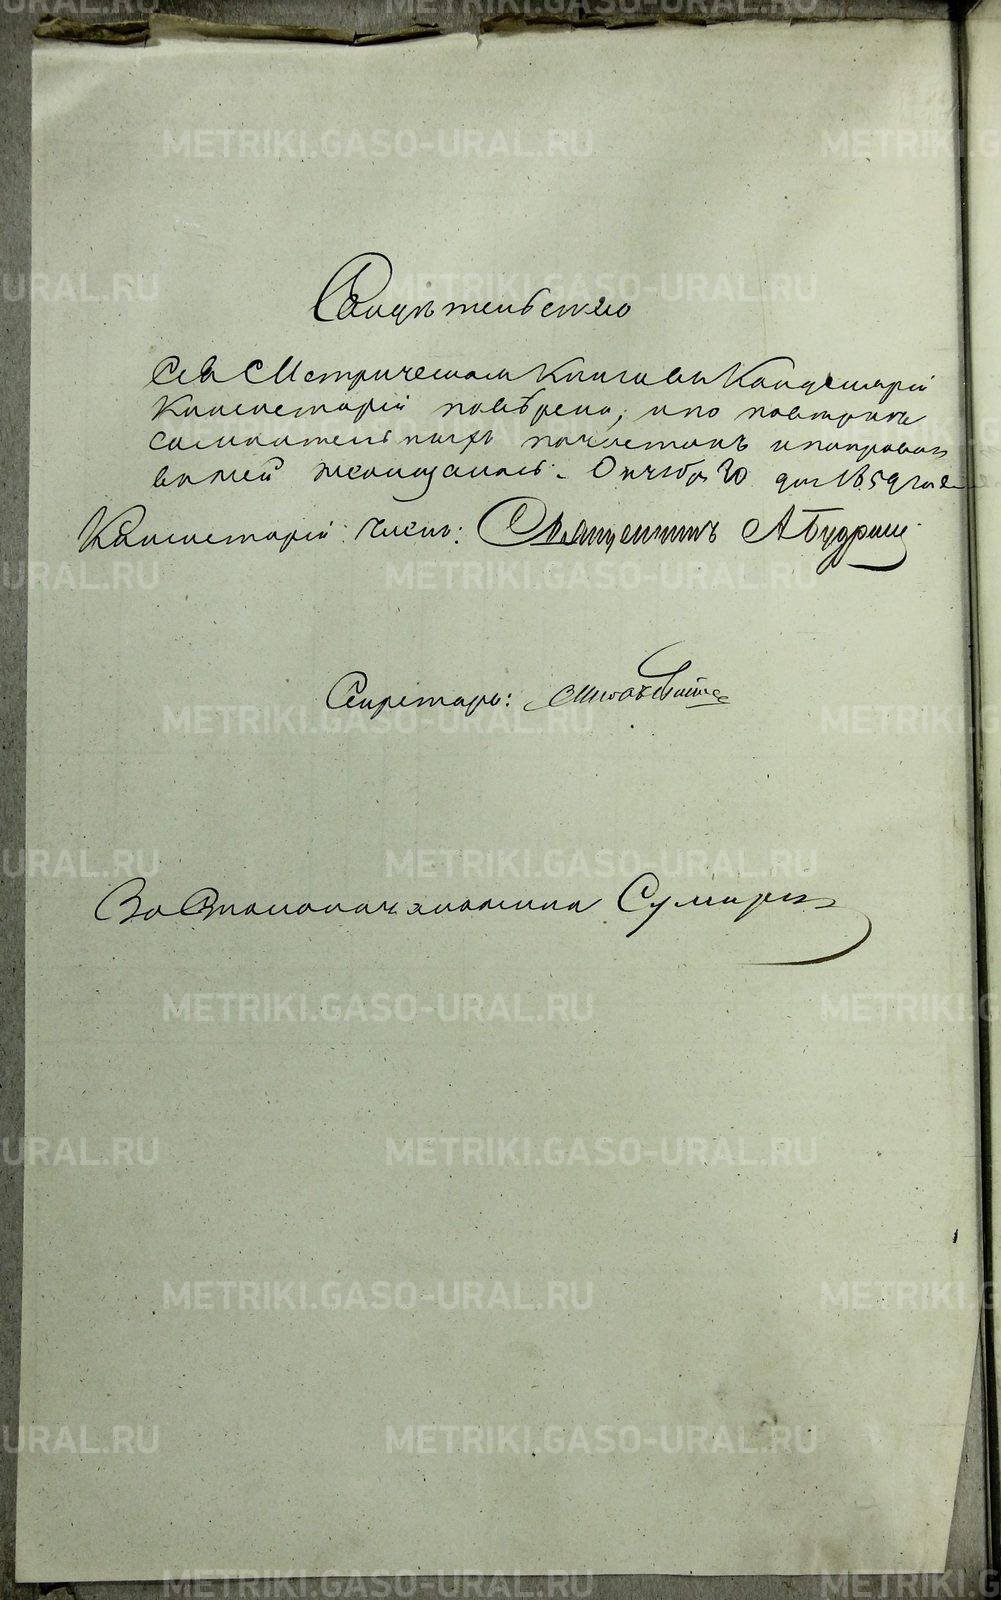 Свидѣтельство
Сія Метрическая Книга въ Канцеляріи
Консисторіи повѣрена, и по повѣркѣ
сомнительныхъ почистокъ и поправокъ
въ ней не оказалось. Октября 20 дня 1859 года
Консисторіи Членъ: Священникъ А Будринъ
Секретарь:
За Столоначальника
METRIKI.GASO-URAL.RU